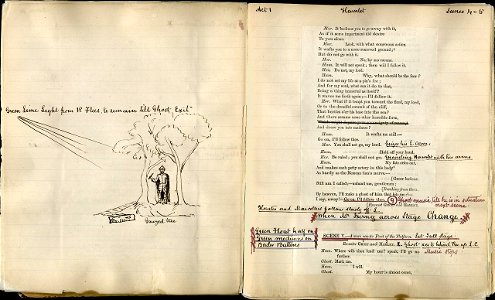 Green Lime Light from 1st Flies, to remain on till Ghost's Exit
Act 1 Hamlet Scenes 4 & 5
Hor. It beckons you to go away with it,
As if it some impartment did desire
To you alone.
Mar. Look, with what courteous action
It waves you to a more removed ground;
But do not go with it.
Hor. No, by no means.
Ham. It will not speak; then will I follow it.
Hor. Do not, my lord.
Ham. Why, what should be the fear?
I do not set my life at a pin's fee;
And, for my soul, what can it do to that,
Being a thing immortal as itself?
It waves me forth again; I'll follow it.
Hor. What if it tempt you toward the flood, my lord,
Or to the dreadful summit of the cliff,
That beetles o'er his base into the sea?
And there assume some other horrible form,
And draw you into madness?
Ham. It waves me still—
Go on, I'll follow thee.
Mar. You shall not go, my lord.
Ham. Hold off your hand.
Hor. Be ruled; you shall not go.
Ham. My fate cries out,
And makes each petty artery in this body
As hardy as the Nemean lion's nerve—
Still am I called;—unhand me, gentlemen;
By heaven, I'll make a ghost of him that lets me:
I say, away!—Go on, I'll follow thee.
Horatio and Marcellus follow slowly
When off Swing across Stage Change
Green Float half on
Green mediums on
SCENE V.—A more remote Part of the Platform.
Ham. Where wilt thou lead me? speak, I'll go no
further.
Ghost. Mark me.
Ham. I will.
Ghost. My hour is almost come,